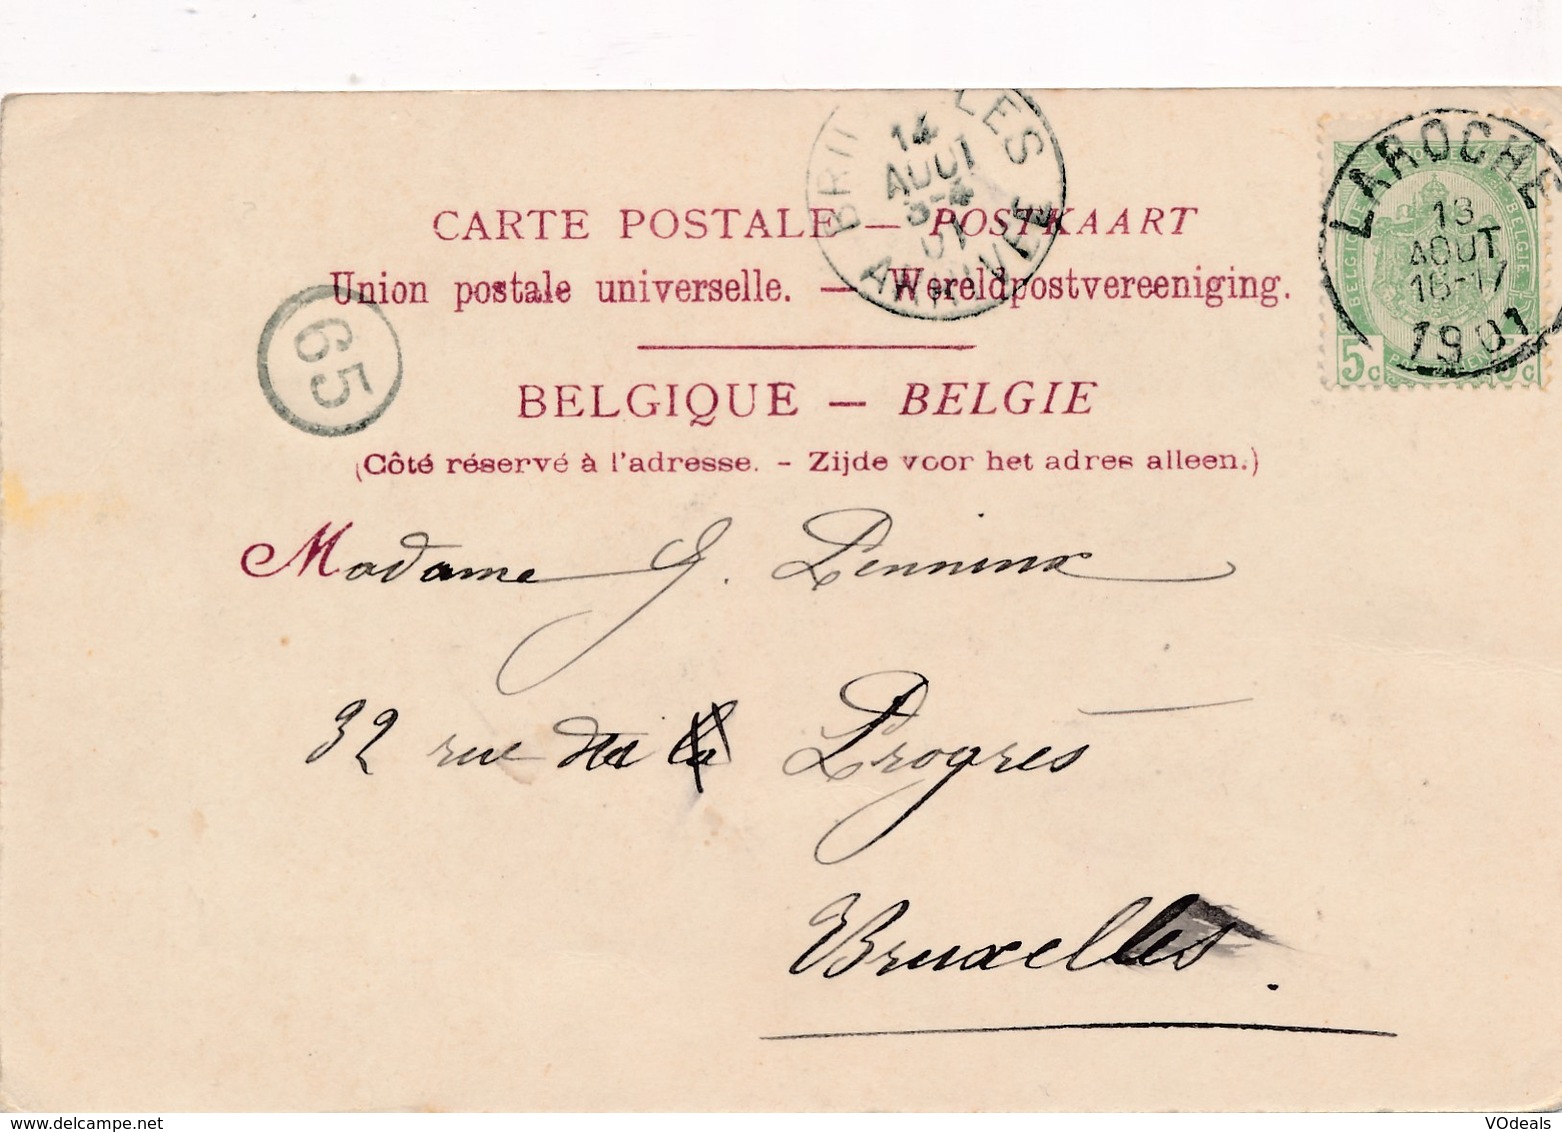 BRU LES
14
AOUT
3-4
01
ARRIVEE
LAROCHE
13
AOUT
16-17
1901
BELGIQUE
BELGIE
5c
CARTE POSTALE — POSTKAART
Union postale universelle. — Wereldpostvereeniging.
65
BELGIQUE — BELGIE
(Côté réservé à l'adresse. - Zijde voor het adres alleen.)
Madame J. Penninx
32 rue du Progrès
Bruxelles.
VOdeals